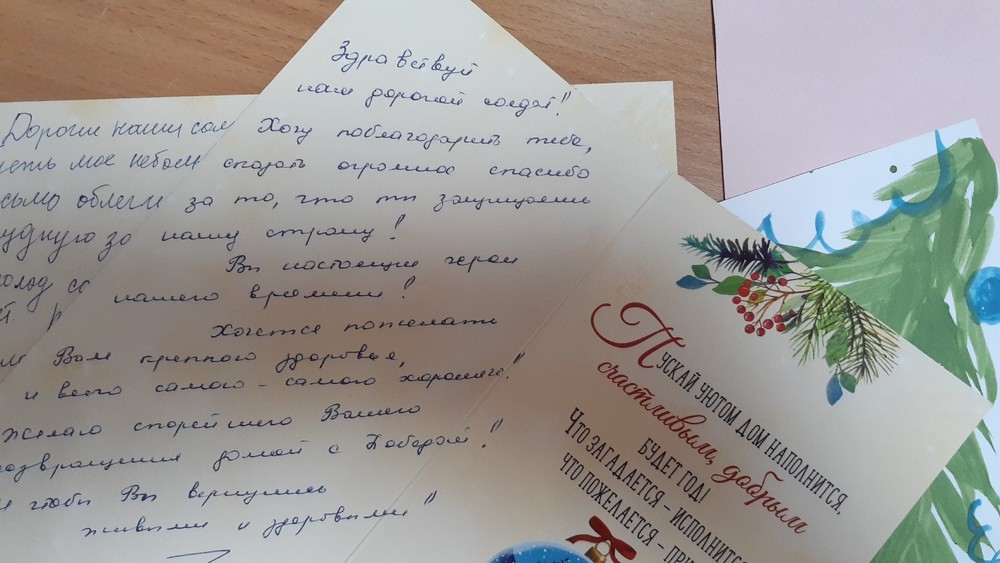 Здравствуй
наш дорогой солдат!
Хочу поблагодарить тебя,
сказать огромное спасибо
за то, что ты защищаешь
нашу страну!
Вы настоящие герои
нашего времени!
Хочется пожелать
Вам крепкого здоровья,
и всего самого - самого хорошего!
Желаю скорейшего Вашего
возвращения домой с Победой!
И чтобы Вы вернулись
живыми и здоровыми!
Дорогие наши
мое небо
облегч
холод
Пускай уютом дом наполнится,
счастливым, добрым
будет год!
Что загадается – исполнится
что пожелается –